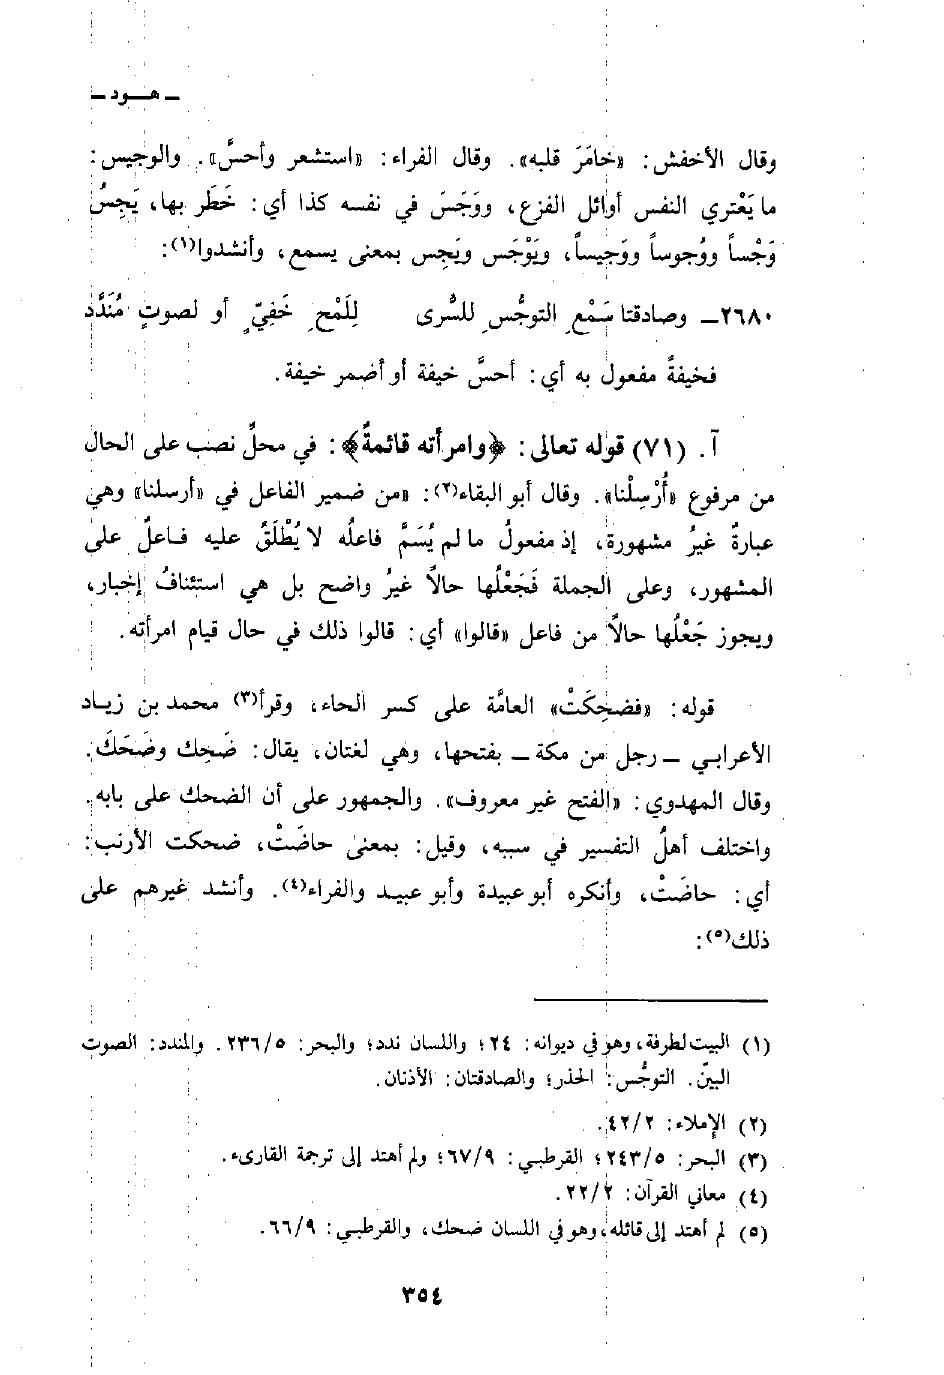 ـ هـــود ـ
وقال الأخفش: «خامَرَ قلبه». وقال الفراء: «استشعر وأحسَّ». والوجيس:
ما يَعْتري النفس أوائل الفزع، ووَجَسَ في نفسه كذا أي: خَطَر بها، يَجِسُ
وَجْساً ووُجوساً ووَجيساً، ويَوْجَس ويَجِس بمعنى يسمع، وأنشدوا(١):
٢٦٨٠ـ وصادقتا سَمْعِ التوجُّسِ للسُّرى لِلَمْحِ خَفِيٍّ أو لصوتٍ مُنَدَّد
فخيفةً مفعول به أي: أحسَّ خيفة أو أضمر خيفة.
آ. (٧١) قوله تعالى: ﴿وامرأته قائمةٌ﴾: في محلِّ نصب على الحال
من مرفوع «أُرْسِلْنا». وقال أبو البقاء(٢): «من ضمير الفاعل في «أرسلنا» وهي
عبارةٌ غيرُ مشهورة، إذ مفعولُ ما لم يُسَمَّ فاعلُه لا يُطْلَقُ عليه فـاعلٌ على
المشهور، وعلى الجملة فَجَعْلُها حالاً غيرُ واضح بل هي استئنافُ إخبار،
ويجوز جَعْلُها حالاً من فاعل «قالوا» أي: قالوا ذلك في حال قيام امرأته.
قوله: «فضحِكَتْ» العامَّة على كسر الحاء، وقرأ(٣) محمد بن زيـاد
الأعرابـي ـ رجل من مكة ـ بفتحها، وهي لغتان، يقال: ضَحِك وضَحَكَ.
وقال المهدوي: «الفتح غير معروف». والجمهور على أن الضحك على بابه.
واختلف أهلُ التفسير في سببه، وقيل: بمعنى حاضَتْ، ضحكت الأرنب:
أي: حاضَتْ، وأنكره أبو عبيدة وأبو عبيـد والفراء(٤). وأنشد غيرهم على
ذلك(٥):
(١) البيت لطرفة، وهو في ديوانه: ٢٤؛ واللسان ندد؛ والبحر: ٢٣٦/٥. والمندد: الصوت
البيّن. التوجُّس: الحذر؛ والصادقتان: الأذنان.
(٢) الإملاء: ٤٢/٢.
(٣) البحر: ٢٤٣/٥؛ القرطبـي: ٦٧/٩؛ ولم أهتد إلى ترجمة القارىء.
(٤) معاني القرآن: ٢٢/٢.
(٥) لم أهتد إلى قائله، وهو في اللسان ضحك، والقرطبـي: ٦٦/٩.
٣٥٤